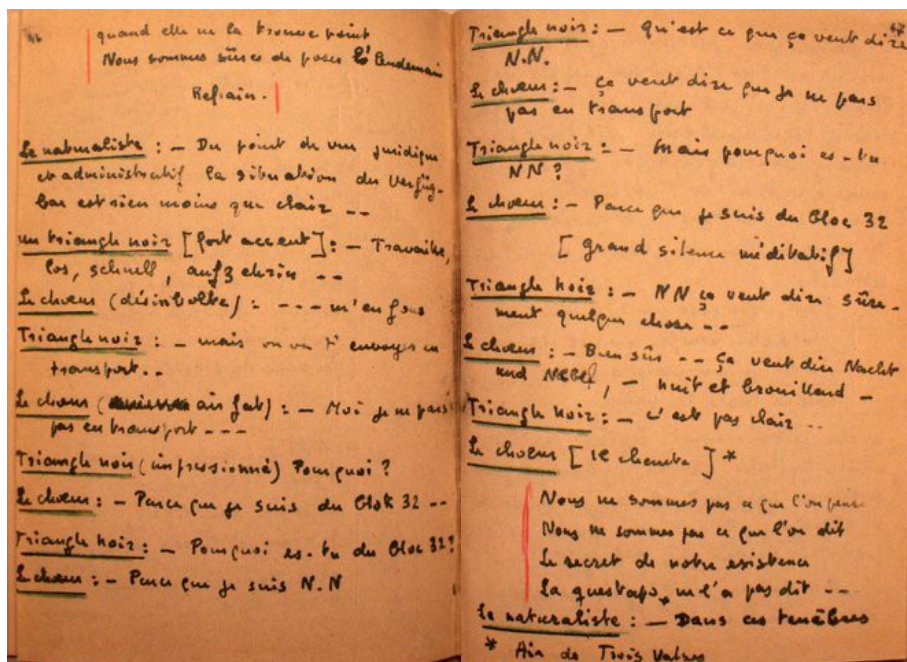 46
quand elle ne la trouve point
Nous sommes sûres de poses le lendemain
Refrain.
Le naturaliste : — Du point de vue juridique
et administratif la situation du Verfüg-
bar est rien moins que clair --
un triangle noir [fort accent] : — Travaille,
los, schnell, aufzehrin --
Le chœur (désinvolte) : --- m'en fous
Triangle noir : — mais on va t'envoyer en
transport..
Le chœur (air fat) : — Moi je ne pars
pas en transport ---
Triangle noir (impressionné) Pourquoi ?
Le chœur : — Parce que je suis du Blok 32 --
Triangle noir : — Pourquoi es-tu du Bloc 32?
Le chœur : — Parce que je suis N.N
47
Triangle noir : — Qu'est ce que ça veut dire
N.N.
Le chœur : — ça veut dire que je ne pars
pas en transport
Triangle noir : — Mais pourquoi es-tu
NN ?
Le chœur : — Parce que je suis du Bloc 32
[grand silence méditatif]
Triangle noir : — NN ça veut dire sûre-
ment quelque chose --
Le chœur : — Bien sûr -- ça veut dire Nacht
und Nebel, — nuit et brouillard —
Triangle noir : — c'est pas clair --
Le chœur [il chante] *
Nous ne sommes pas ce que l'on pense
Nous ne sommes pas ce que l'on dit
Le secret de notre existence
La questapo n'l'a pas dit --
Le naturaliste : — Dans ces tenèbres
* Air de Trois Valses